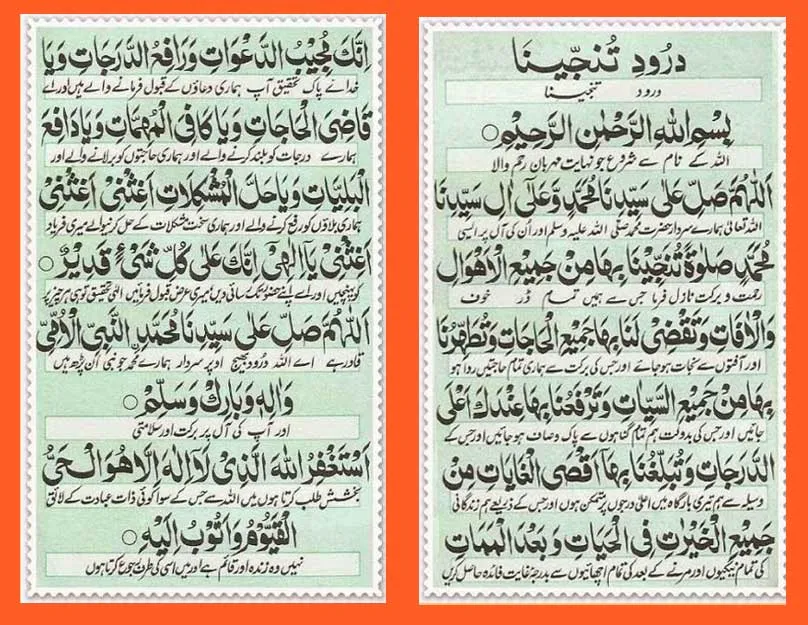 درُودِ تُنَجِّینَا
درود تنجینا
بِسْمِ اللهِ الرَّحْمٰنِ الرَّحِيْمِ
اللہ کے نام سے شروع جو نہایت مہربان رحم والا
اَللّٰهُمَّ صَلِّ عَلٰى سَيِّدِنَا مُحَمَّدٍ وَّعَلٰى اٰلِ سَيِّدِنَا
اللہ تعالیٰ ہمارے سردار حضرت محمد صلی اللہ علیہ وسلم اور اُن کی آل پر ایسی
مُحَمَّدٍ صَلٰوةً تُنَجِّيْنَا بِهَا مِنْ جَمِيْعِ الْاَهْوَالِ
رحمت و برکت نازل فرما جس سے ہمیں تمام ڈر خوف
وَالْاٰفَاتِ وَتَقْضِىْ لَنَا بِهَا جَمِيْعَ الْحَاجَاتِ وَتُطَهِّرُنَا
اور آفتوں سے نجات ہو جائے اور جس کی برکت سے ہماری تمام حاجتیں روا ہو
بِهَا مِنْ جَمِيْعِ السَّيِّاٰتِ وَتَرْفَعُنَا بِهَا عِنْدَكَ اَعْلَى
جائیں اور جس کی بدولت ہم تمام گناہوں سے پاک و صاف ہو جائیں اور جس کے
الدَّرَجَاتِ وَتُبَلِّغُنَا بِهَا اَقْصَى الْغَايَاتِ مِنْ
وسیلہ سے ہم تیری بارگاہ میں اعلیٰ درجوں پر متمکن ہوں اور جس کے ذریعے ہم زندگانی
جَمِيْعِ الْخَيْرٰتِ فِى الْحَيَاتِ وَبَعْدَ الْمَمَاتِ
کی تمام نیکیوں اور مرنے کے بعد کی تمام اچھائیوں سے بدرجہ غایت فائدہ حاصل کریں
اِنَّكَ مُجِيْبُ الدَّعْوَاتِ وَرَافِعُ الدَّرَجَاتِ وَيَا
خدائے پاک تحقیق آپ ہماری دعاؤں کے قبول فرمانے والے ہیں اور اے
قَاضِىَ الْحَاجَاتِ وَيَا كَافِىَ الْمُهِمَّاتِ وَيَا دَافِعَ
ہمارے درجات کو بلند کرنے والے اور ہماری حاجتوں کو بر لانے والے اور
الْبَلِيَّاتِ وَيَا حَلَّ الْمُشْكِلَاتِ اَغِثْنِىْ اَغِثْنِىْ
ہماری بلاؤں کو رفع کرنے والے اور ہماری سخت مشکلات کے حل کرنیوالے میری فریاد
اَغِثْنِىْ يَا اِلٰهِىْ اِنَّكَ عَلٰى كُلِّ شَىْءٍ قَدِيْرٌ
کو پہنچیں اور اے اپنے حضور تک رسائی دیں میری عرض قبول فرمائیں الٰہی تحقیق تو ہی ہر چیز پر
اَللّٰهُمَّ صَلِّ عَلٰى سَيِّدِنَا مُحَمَّدِ النَّبِىِّ الْاُمِّىِّ
قادر ہے اے اللہ درود بھیج اوپر سردار ہمارے محمد جو نبی ان پڑھ ہیں
وَاٰلِهٖ وَبَارِكْ وَسَلِّمْ
اور آپ کی آل پر برکت اور سلامتی
اَسْتَغْفِرُ اللهَ الَّذِىْ لَا اِلٰهَ اِلَّا هُوَ الْحَىُّ
بخشش طلب کرتا ہوں میں اللہ سے جس کے سوا کوئی ذات عبادت کے لائق
الْقَيُّوْمُ وَاَتُوْبُ اِلَيْهِ
نہیں وہ زندہ اور قائم ہے اور میں اسی کی طرف رجوع کرتا ہوں